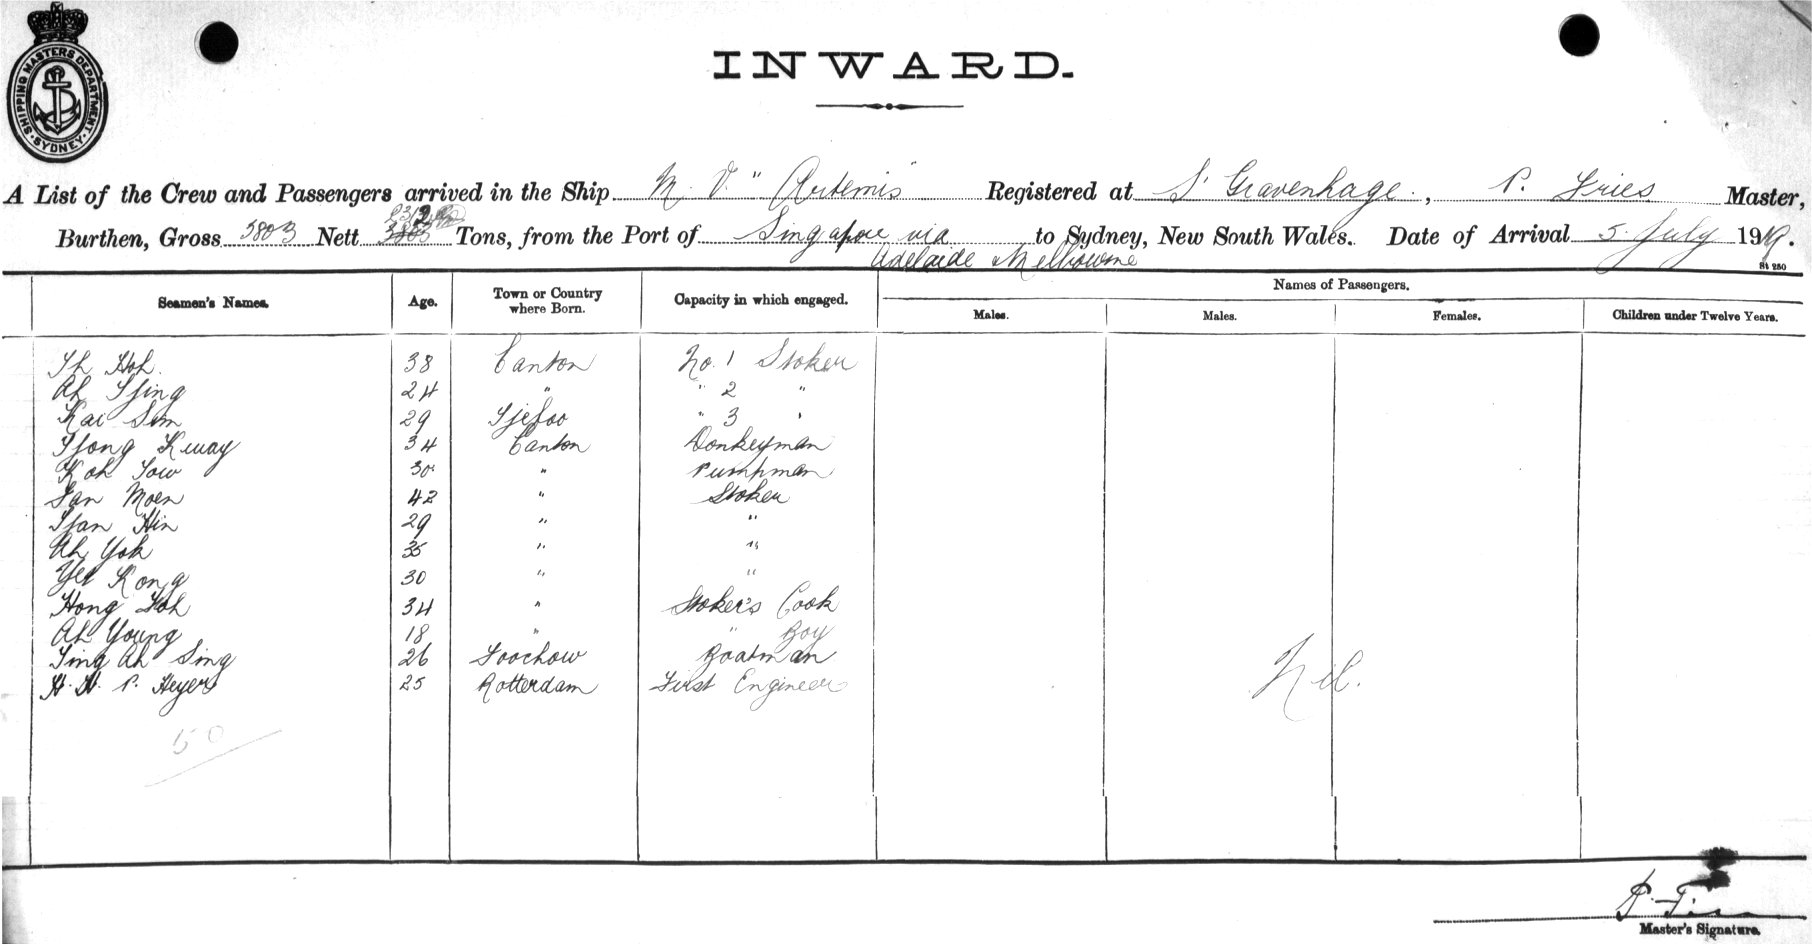 SHIPPING MASTERS DEPARTMENT · SYDNEY ·
INWARD.
A List of the Crew and Passengers arrived in the Ship M. V. "Artemis" Registered at S' Gravenhage, P. Fries Master,
Burthen, Gross 3803 Nett 2312 3803 Tons, from the Port of Singapore via to Sydney, New South Wales. Date of Arrival 5 July 1919.
Adelaide & Melbourne
St 250
Seamen's Names. Age. Town or Country where Born. Capacity in which engaged. Names of Passengers.
Males. Males. Females. Children under Twelve Years.
Hoh. 38 Canton No. 1 Stoker
Ah Tjing 24 " " 2 "
Kai Sim 29 Tjefoo " 3 "
Tjong Kway 34 Canton Donkeyman
Koh Sow 30 " Pumpman
Moen 42 " Stoker
Tjan Hin 29 " "
Ah Yok 35 " "
Yet Kong 30 " "
Hong 34 " Stoker's Cook
Ah Young 18 " " Boy
Ting Ah Sing 26 Foochow Boatman
H. H. P. Heyer 25 Rotterdam First Engineer
Nil.
50
P. Fries
Master's Signature.